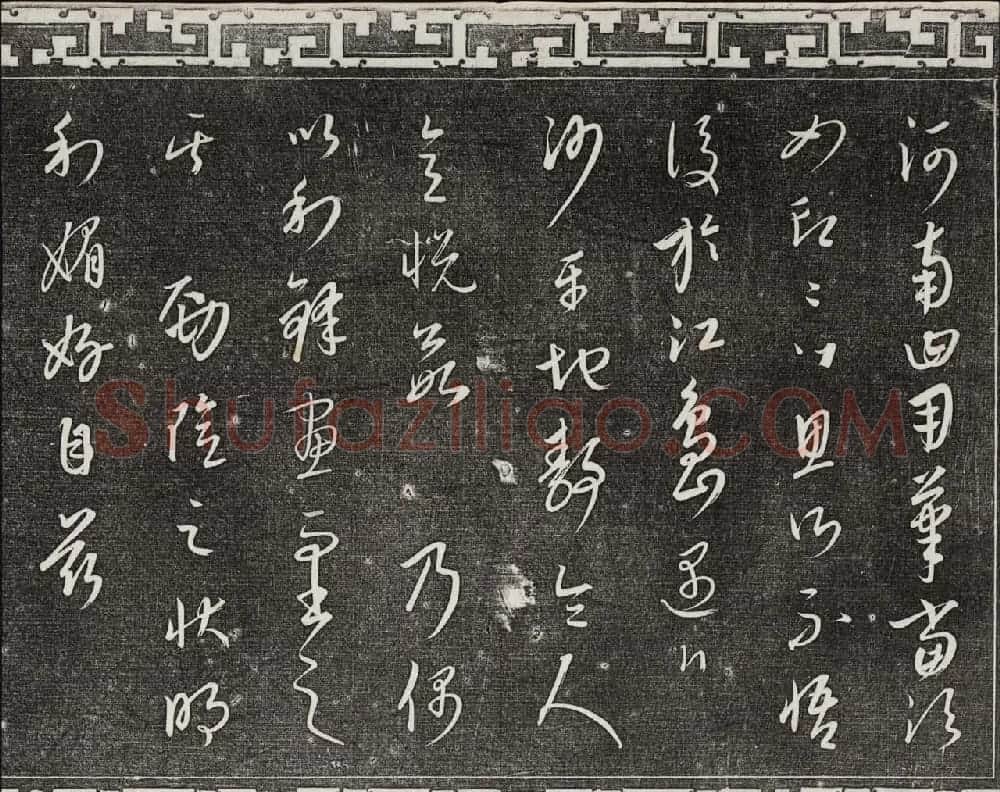 河南曰用筆當須
如印〻 所不悟
後於江島遇
沙平地靜令人
意悅 乃偶
以利鋒畫而書之
其勁險之狀明
利媚好自茲
Shufaziliao.COM